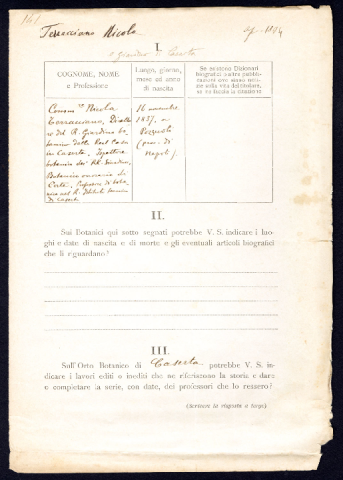 161
Terracciano Nicola
I.
giardino di Caserta
COGNOME, NOME
e Professione
Luogo, giorno,
mese ed anno
di nascita
Se esistono Dizionari
biografici o altre pubbli-
cazioni che danno noti-
zie sulla vita del titolare,
se ne indichi la citazione
Nicola
Terracciano, Dirett
del R. Giardino bo-
tanico della Real Casa
in Caserta, Ispettore
botanico dei RR. Giardini
Botanico onorario di
Corte, Professore di bota
nica nel R. Istituto tecnico
di Caserta
16 novembre
1837, a
Pozzuoli
(prov. di
Napoli).
II.
Sui Botanici qui sotto segnati potrebbe V. S. indicare i luo-
ghi e date di nascita e di morte e gli eventuali articoli biografici
che li riguardano?
III.
Sull'Orto Botanico di Caserta potrebbe V. S. in-
dicare i lavori editi o inediti che ne riferiscono la storia e dare
o completare la serie, con date, dei professori che lo ressero?
(Scrivere in risposta a tergo)